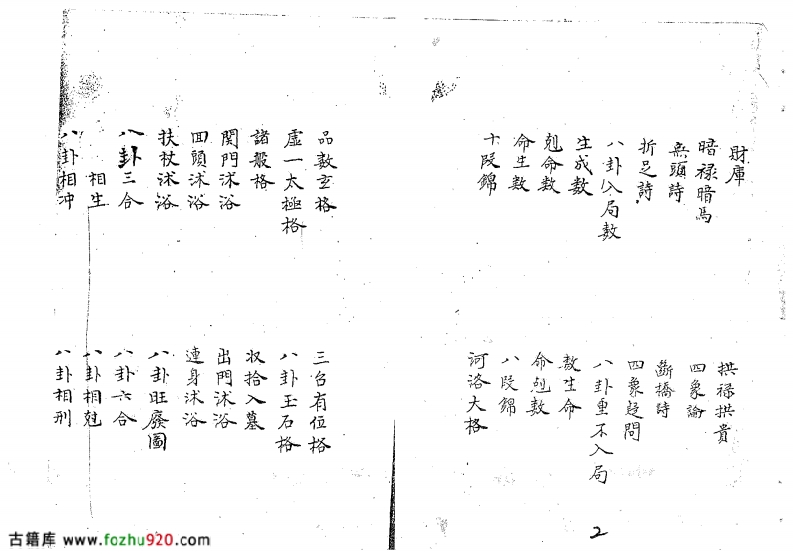 財庫
暗禄暗馬
無頭詩
折足詩
八卦入局数
生成数
剋命数
命生数
十段錦
拱禄拱貴
四象論
斷橋詩
四象疑問
八卦重不入局
数生命
命剋数
八段錦
河洛大格
2
品数玄格
虚一太極格
諸般格
関門沐浴
回頭沐浴
扶杖沐浴
八卦三合
相生
八卦相冲
三台有位格
八卦玉石格
収拾入墓
出門沐浴
連身沐浴
八卦旺廢圖
八卦六合
八卦相尅
八卦相刑
古籍库 www.fozhu920.com